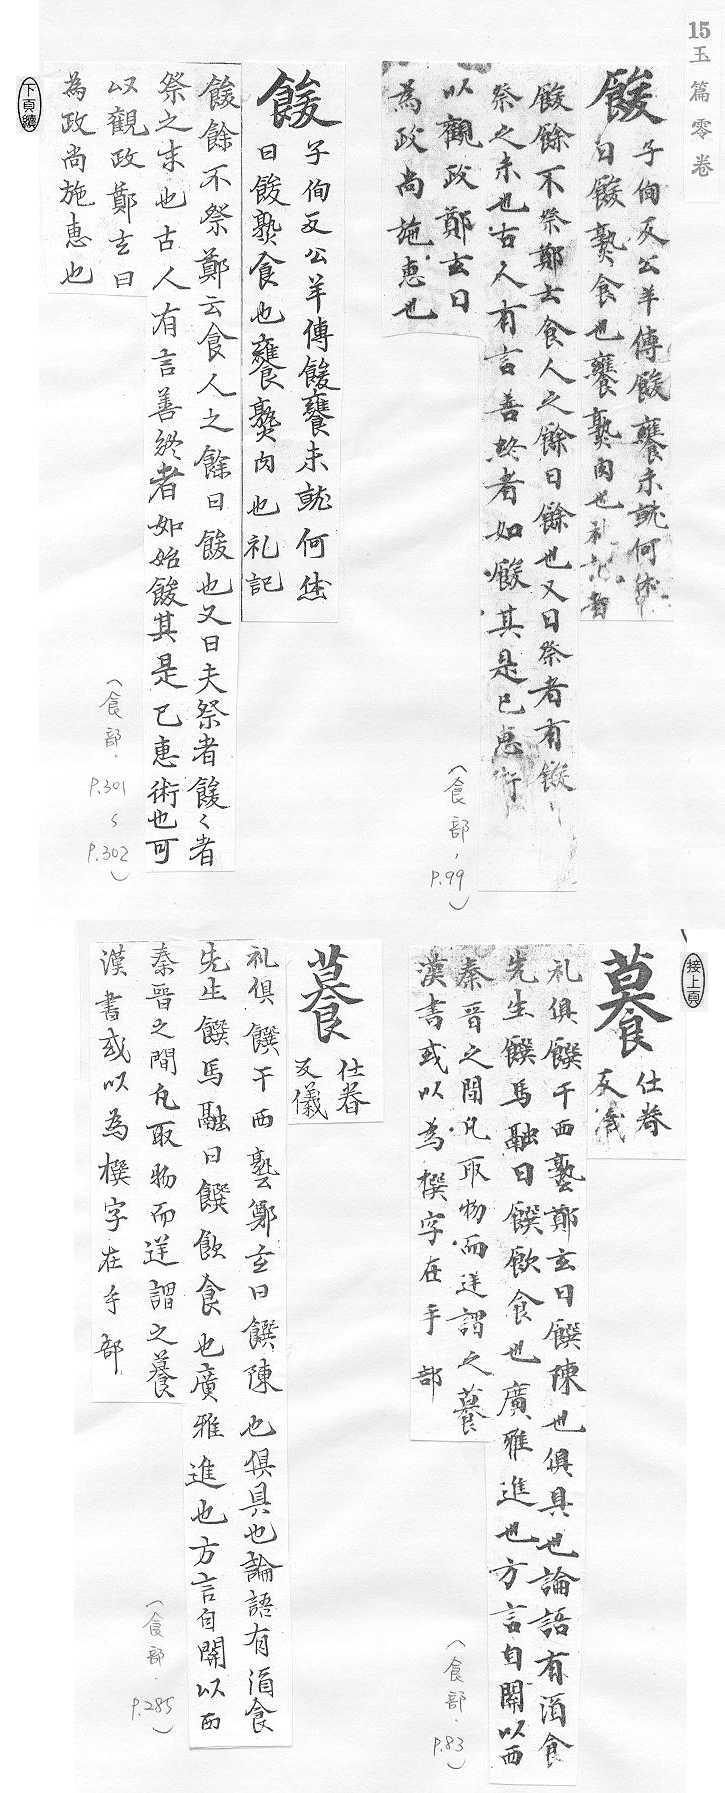 15玉篇零卷
餕
子侚反公羊傳餕饔未就何休
曰餕熟食也饔熟肉也礼記曰
餕餘不祭鄭云食人之餘曰餘也又曰祭者有餕
祭之末也古人有言善終者如餕其是已惠術
以觀政鄭玄曰
為政尚施惠也
(食部，P.99)
餕
子侚反公羊傳餕饔未就何休
曰餕熟食也饔熟肉也礼記
餕餘不祭鄭云食人之餘曰餕也又曰夫祭者餕〻者
祭之末也古人有言善終者如始餕其是已惠術也可
以觀政鄭玄曰
為政尚施惠也
(食部，P.301~P.302)
下頁續
接上頁
養
仕眷
反儀
礼俱饌于西塾鄭玄曰饌陳也俱具也論語有酒食
先生饌馬融曰饌飲食也廣雅進也方言自關以西
秦晉之間凡取物而逆謂之
漢書或以為撰字在手部
(食部，P.83)
仕眷
反儀
礼俱饌于西塾鄭玄曰饌陳也俱具也論語有酒食
先生饌馬融曰饌飲食也廣雅進也方言自關以西
秦晉之間凡取物而逆謂之
漢書或以為撰字在手部
(食部，P.285)